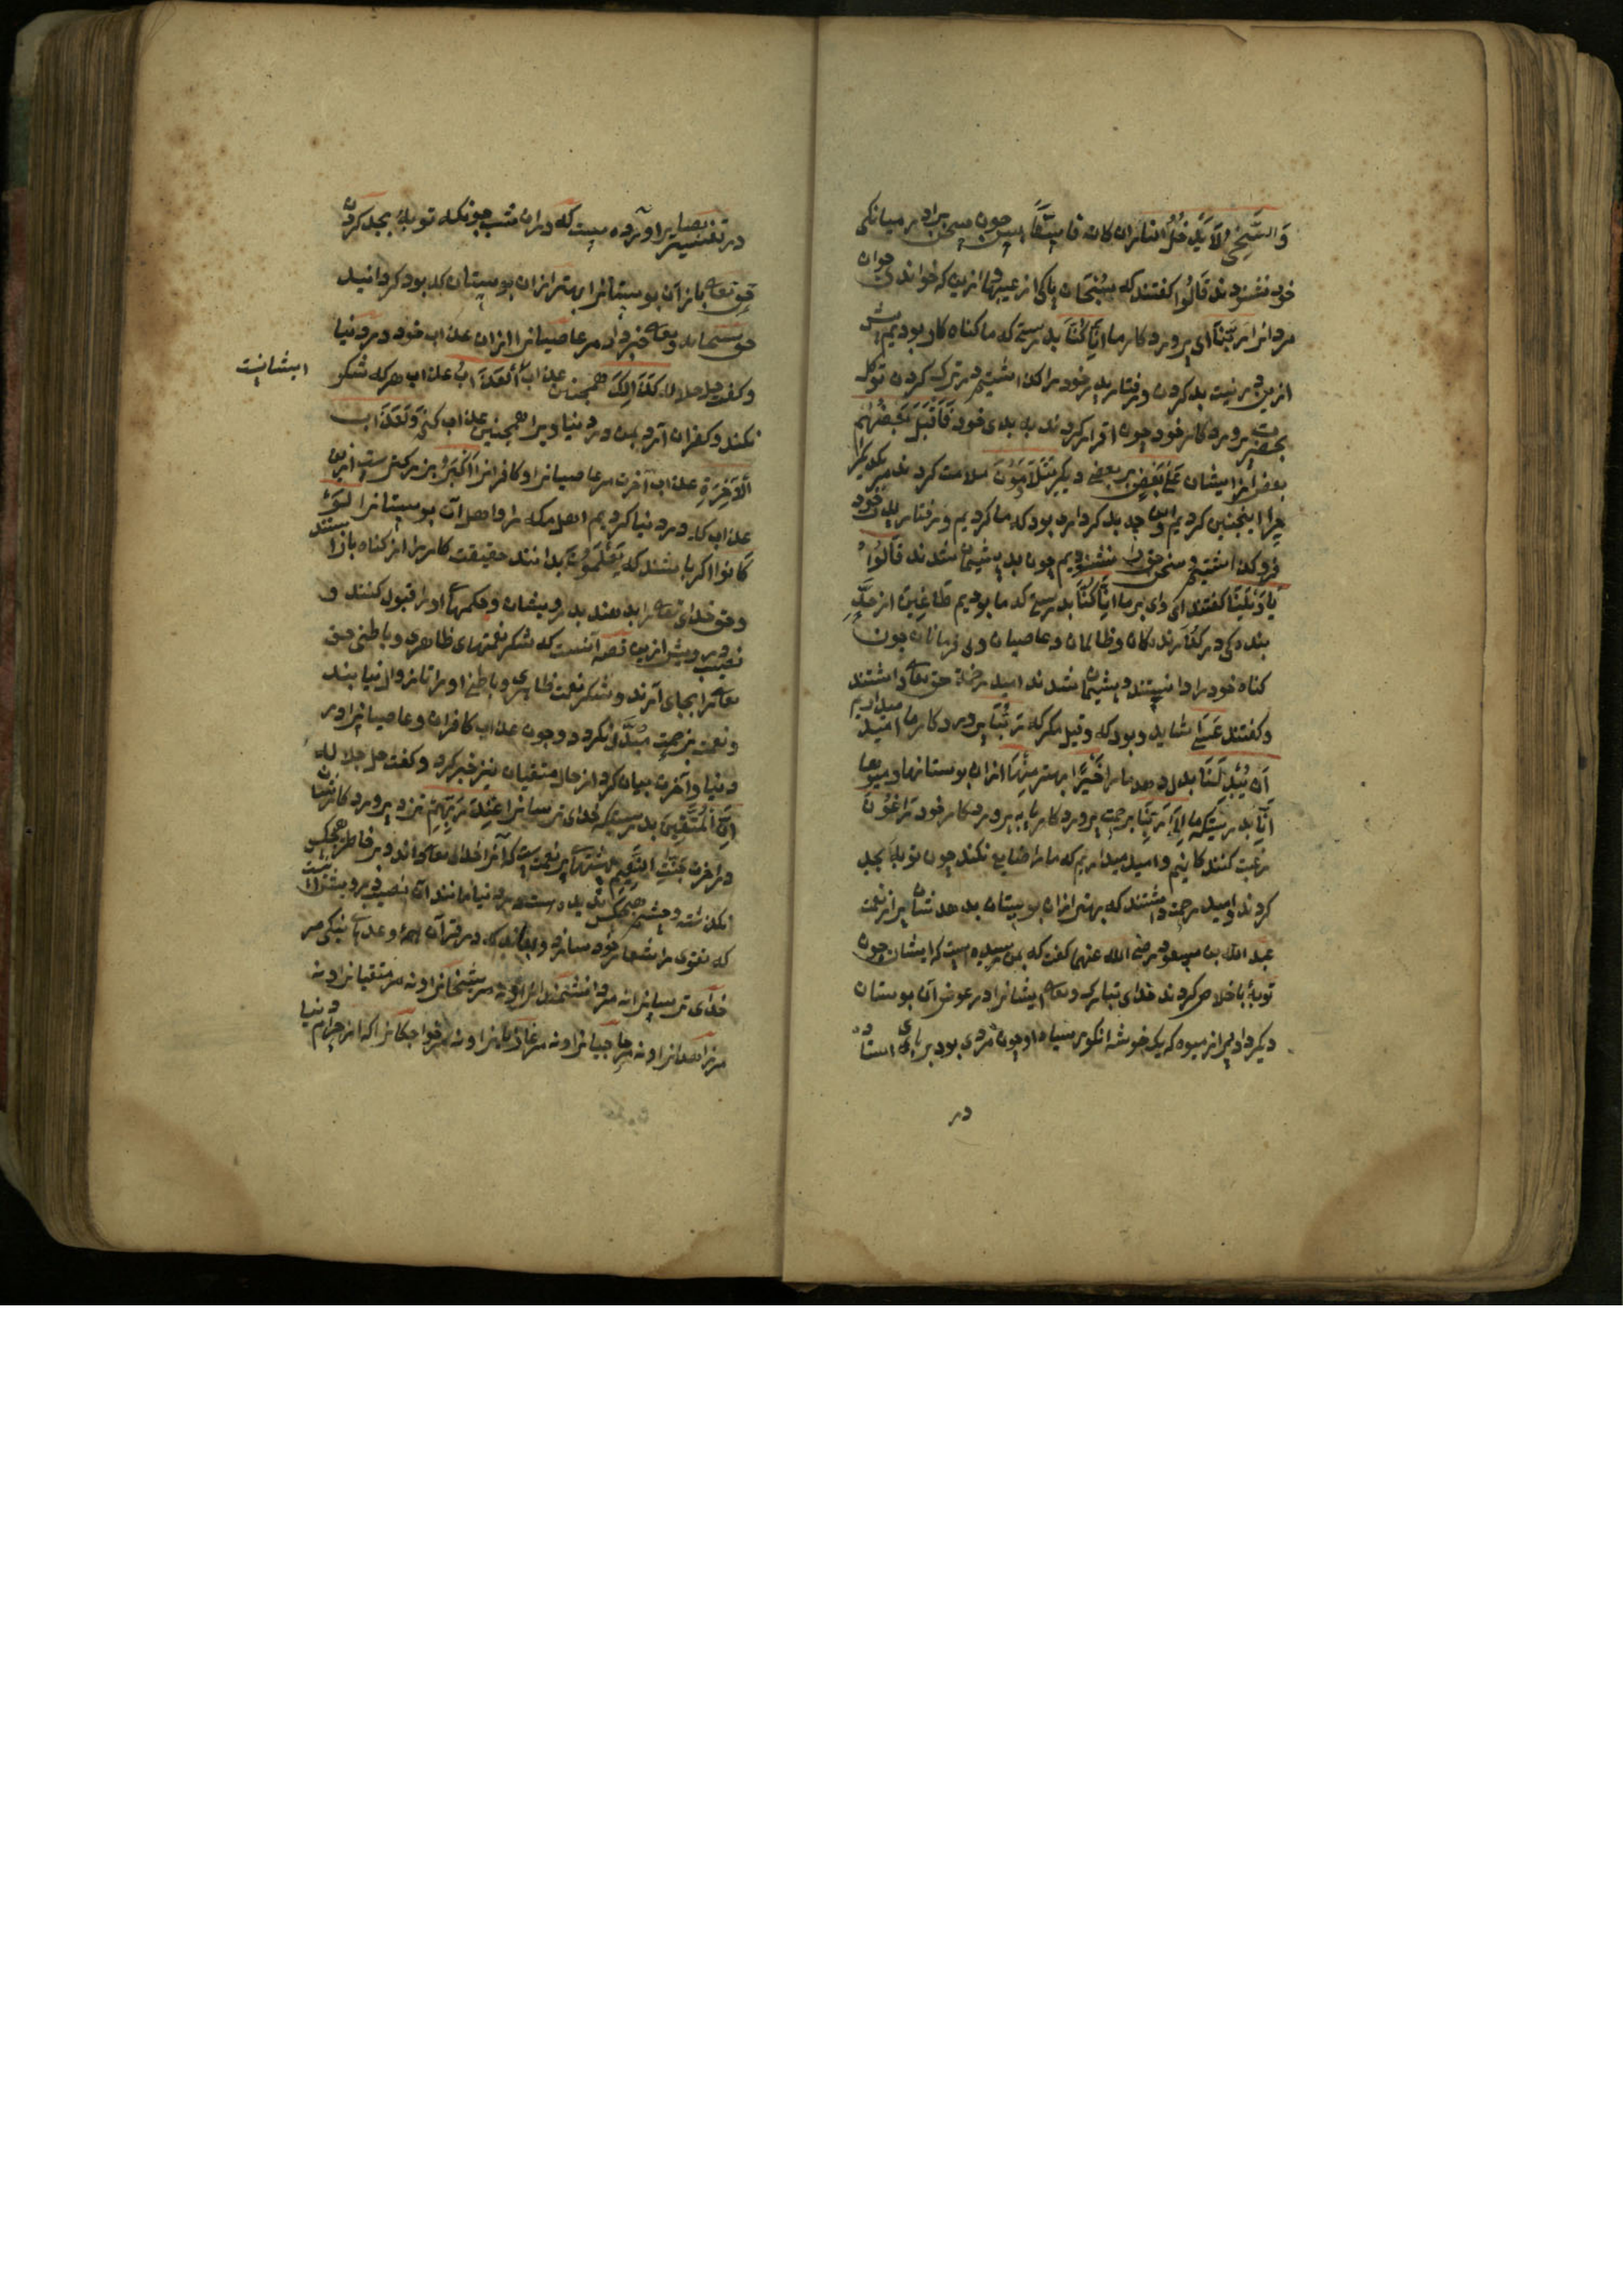 وَالشَّحِيحُ لَا يَدْخُلُ النار ان كان فاسقًا پس چون سخن برادر میانکی
خود نشنودند قَالُوا کفتند که سُبْحَانَ پاکی از عیبها ازین که خواند جوان
مردانرا رَبِّنَا ای پروردکار ما اِنَّا كُنَّا بدرستی که ما کناه کار بودیم پیش
ازین در نیت بد کردن و رفتار پدر خود را کذاشتیم در ترک کردن توکل
بحضرت پروردکار خود چون اقرار کردند به بدی خود فَاَقْبَلَ بَعْضُهُمْ
بعض از ایشان عَلَى بَعْضٍ بر بعضی دیکر يَتَلَاوَمُونَ ملامت کردند مر یکدیکر
چرا اینچنین کردیم و این چه بد کردار بود که ما کردیم و رفتار پدر خود
فرو کذاشتیم و سخن حق را نشنودیم چون بد پشیمان شدند قَالُوا
يَا وَيْلَنَا کفتند ای وای بر ما اِنَّا كُنَّا بدرستی که ما بودیم طَاغِينَ از حدّ
بندکی در کذرندکان و ظالمان و عاصیان و بی فرمانان چون
کناه خود را دانستند و پشیمان شدند امید رحمة حق تعالی داشتند
و کفتند عَسَى شاید و بود که وقیل مکر که رَبُّنَا پروردکار ما امید میداریم
اَنْ يُبْدِلَنَا بدل دهد ما را خَيْرًا بهتر مِنْهَا ازان بوستانها و میوها
اِنَّا بدرستیکه ما اِلَى رَبِّنَا برحمت پروردکار ما به پروردکار خود رَاغِبُونَ
رغبت کنند کانیم و امید میداریم که ما را ضایع نکند چون توبهٔ بجد
کردند و امید رحمت داشتند که بهتر ازان بوستان بدهد شان پر از نعمت
عبد الله بن مسعود رضی الله عنهما کفت که بمن رسیده است که ایشان چون
توبهٔ با خلاص کردند خدای تبارک و تعالی ایشانرا در عوض آن بوستان
دیکر داد پر از میوه که یک خوشه انکور سیاه او چون مردی بود بر پای استاده
در
در تفسیر بصایر آورده است که دران شب چونکه توبهٔ بجد کردن
حق تعالی باز آن بوستانرا بهتر ازان بوستان که بود کردانید
حق سبحانه و تعالی خبر داد مر عاصیانرا ازان عذاب خود در دنیا
و کفت جل جلاله كَذَلِكَ همچنین عذاب الْعَذَابُ عذاب هر که شکر
ایشانست
نکند و کفران آرد بمن در دنیا ویرا همچنین عذاب کنم وَلَعَذَابُ
الْاٰخِرَةِ عذاب آخرت مر عاصیانرا و کافرانرا اَكْبَرُ بزرکترست ازین
عذاب که در دنیا کردیم اهل مکه را و اهل آن بوستانرا لَوْ
كَانُوا اکر باشند که يَعْلَمُونَ بدانند حقیقت کار را از کناه باز استند
و حق خدای تعالی را بدهند بدرویشان و حکمهای او را قبول کنند و
نصیب درویش ازین قصه آنست که شکر نعمتهای ظاهری و باطنی حق
تعالی را بجای آرند و شکر نعمت ظاهری و باطنی او را تا زوال نیابند
و نعمت بزحمت مبدّل نکردد و چون عذاب کافران و عاصیانرا در
دنیا و آخرت بیان کرد از حال متقیان نیز خبر کرد و کفت جل جلاله
اِنَّ لِلْمُتَّقِينَ بدرستیکه خدای ترسانرا عِنْدَ رَبِّهِمْ نزد پروردکار شان
در آخرت جَنَّاتِ النَّعِيمِ بهشتهای پر نعمت است که آنرا خدای تعالی داند و بر خاطر هیچکس
نکذشته و چشم هیچکس ندیده است در دنیا مانند آن نصیب درویش آنست
که تقوی را شعار خود سازد و بداند که در قرآن همهٔ وعدهای نیکی مر
خدای ترسانرا نه مر دانشمندانرا و نه مر شیخانرا و نه مر متقیانرا و نه
مر زاهدانرا و نه مر حاجیانرا و نه مر غازیانرا و نه مر خواجکانرا که از حرام دنیا